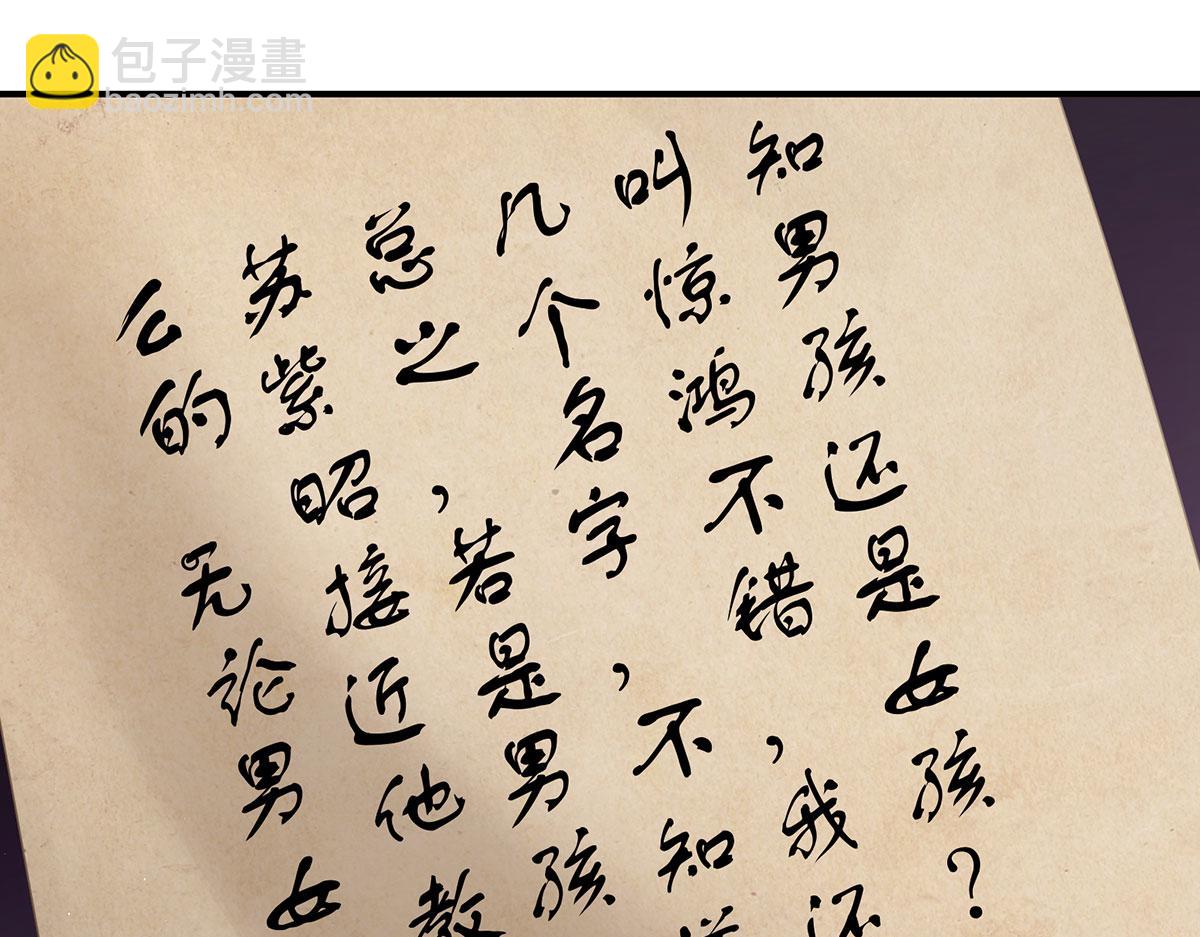 包子漫畫
baozimh.com
知男孩还是女孩？
叫惊鸿不错，我还
几个名字，不知
总之，若是男孩
苏紫昭接近他教
么的无论男女